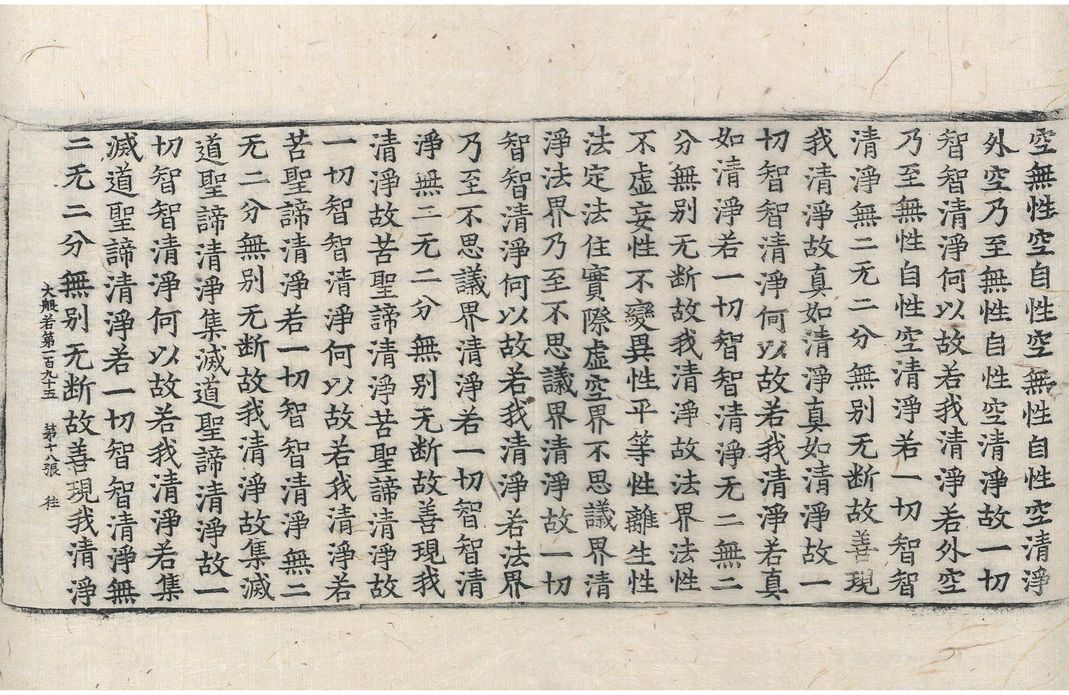 空無性空自性空無性自性空清淨
外空乃至無性自性空清淨故一切
智智清淨何以故若我清淨若外空
乃至無性自性空清淨若一切智智
清淨無二无二分無别无断故善現
我清淨故真如清淨真如清淨故一
切智智清淨何以故若我清淨若真
如清淨若一切智智清淨无二無二
分無别无断故我清淨故法界法性
不虚妄性不變異性平等性離生性
法定法住實際虚空界不思議界清
淨法界乃至不思議界清淨故一切
智智清淨何以故若我清淨若法界
乃至不思議界清淨若一切智智清
淨無二无二分無别无断故善現我
清淨故苦聖諦清淨苦聖諦清淨故
一切智智清淨何以故若我清淨若
苦聖諦清淨若一切智智清淨無二
无二分無别无断故我清淨故集滅
道聖諦清淨集滅道聖諦清淨故一
切智智清淨何以故若我清淨若集
滅道聖諦清淨若一切智智清淨無
二无二分無别无断故善現我清淨
大般若第一百九十五 第十八張 柱